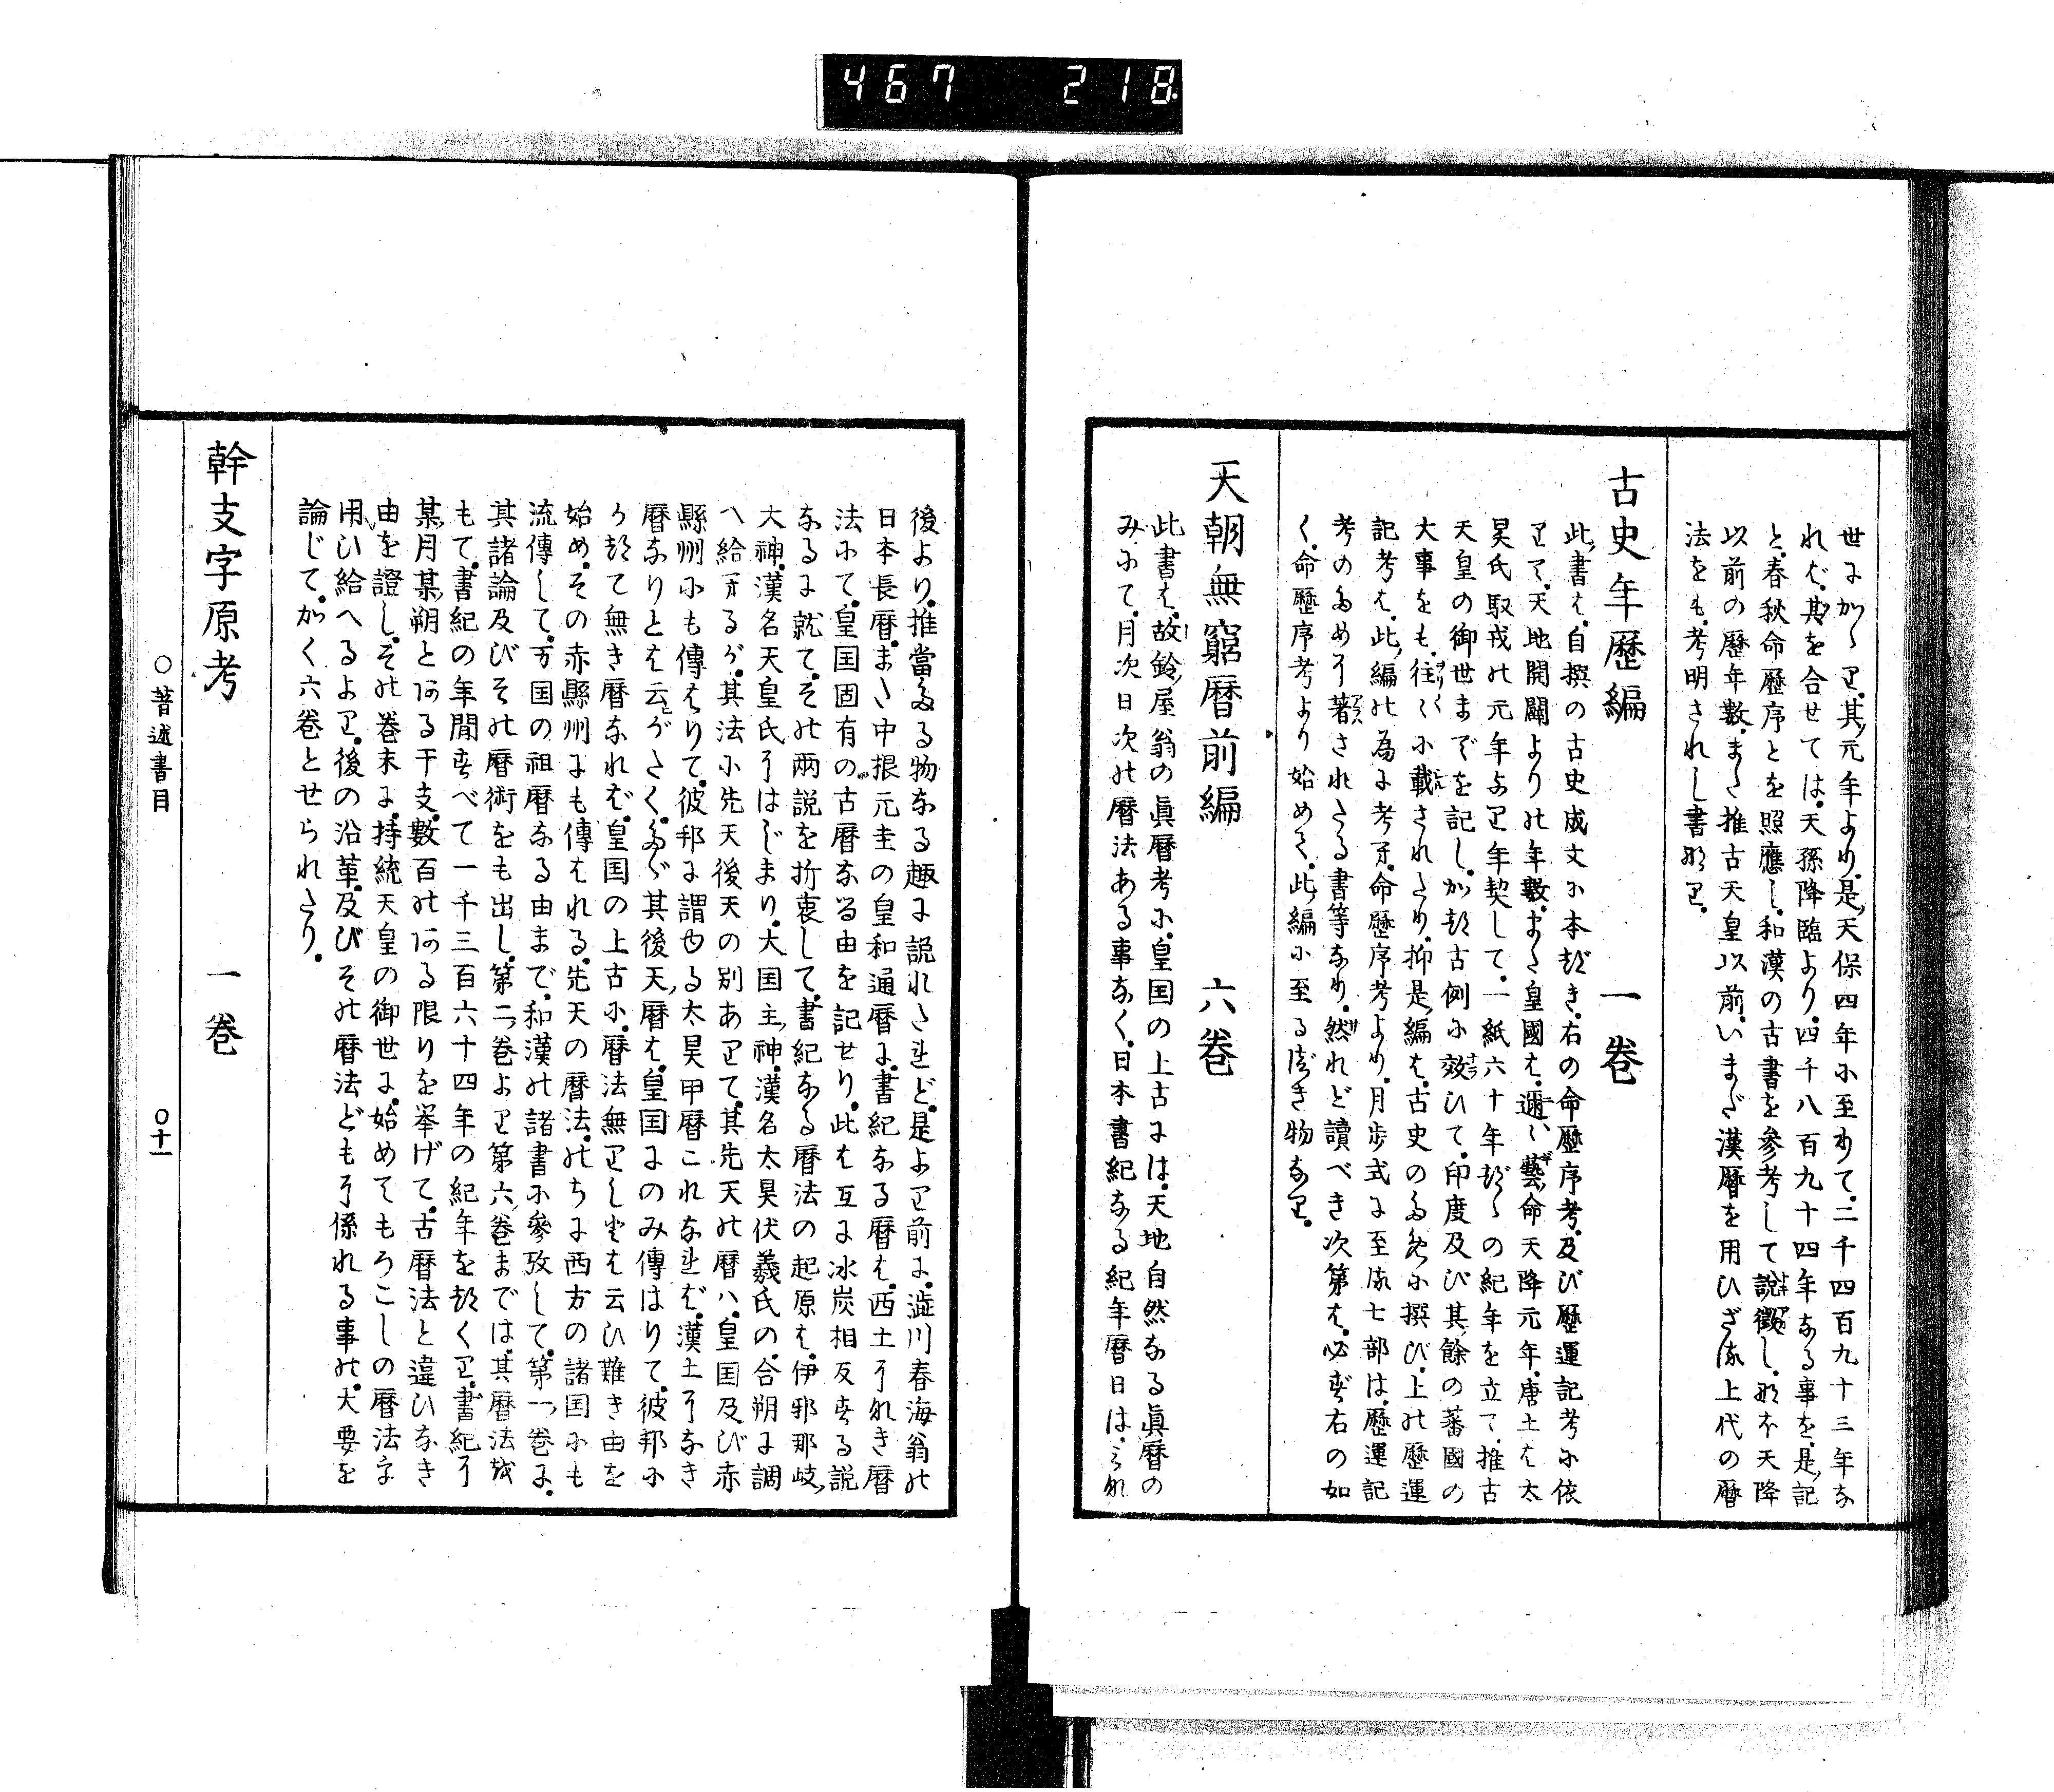 467 218
世にかゝり。其元年より。是天保四年に至りて。二千四百九十三年な
れば。其を合せては。天孫降臨より。四千八百九十四年なる事を。是記
と。春秋命歴序とを照應し。和漢の古書を參考して說徴し。なほ天降
以前の歴年數。また推古天皇以前。いまだ漢暦を用ひざる上代の暦
法をも。考明されし書なり。
古史年歴編 一卷
此書は。自撰の古史成文に本づき。右の命歴序考。及び歴運記考に依
りて。天地開闢よりの年數。また皇國は。邇々藝命天降元年。唐土は太
昊氏馭戎の元年より年契して。一紙六十年づゝの紀年を立て。推古
天皇の御世までを記し。かつ古例に效ひて。印度及び其餘の蕃國の
大事をも。往々に載されたり。抑是編は。古史のために撰び。上の歴運
記考は。此編の為に考へ。命歴序考より。月步式に至る七部は。歴運記
考のために著されたる書等なり。然れど讀べき次第は。必ず右の如
く。命歴序考より始めて。此編に至るべき物なり。
天朝無窮暦前編 六卷
此書は。故鈴屋翁の眞暦考に。皇国の上古には。天地自然なる眞暦の
みにて。月次日次の暦法ある事なく。日本書紀なる紀年暦日は。これ
後より。推當たる物なる趣に說れたれど。是より前に。澁川春海翁の
日本長暦。また中根元圭の皇和通暦に。書紀なる暦は。西土になき暦
法にて。皇国固有の古暦なる由を記せり。此は互に氷炭相反する說
なるに就て。その兩說を折衷して。書紀なる暦法の起原は。伊邪那岐
大神。漢名天皇氏にはじまり。大国主神。漢名太昊伏羲氏の。合朔に調
へ給へるが。其法に先天後天の別ありて。其先天の暦ハ。皇国及び赤
縣州にも傳はりて。彼邦に謂ゆる太昊甲暦これなれば。漢土になき
暦なりとは云がたく。たゞ其後天暦は。皇国にのみ傳はりて。彼邦に
かつて無き暦なれば。皇国の上古に。暦法無りしとは云ひ難き由を
始め。その赤縣州にも傳はれる。先天の暦法。のちに西方の諸国にも
流傳して。万国の祖暦なる由まで。和漢の諸書に參攷して。第一卷に。
其諸論及びその暦術をも出し。第二卷より第六卷までは。其暦法を
もて。書紀の年閒すべて一千三百六十四年の紀年をつくり。書紀に
某月某朔とある干支。數百のある限りを举げて。古暦法と違ひなき
由を證し。その卷末に。持統天皇の御世に。始めてもろこしの暦法を
用ひ給へるより。後の沿革。及びその暦法どもに係れる事の。大要を
論じて。かく六卷とせられたり。
幹支字原考 一卷
○著述書目 ○十一